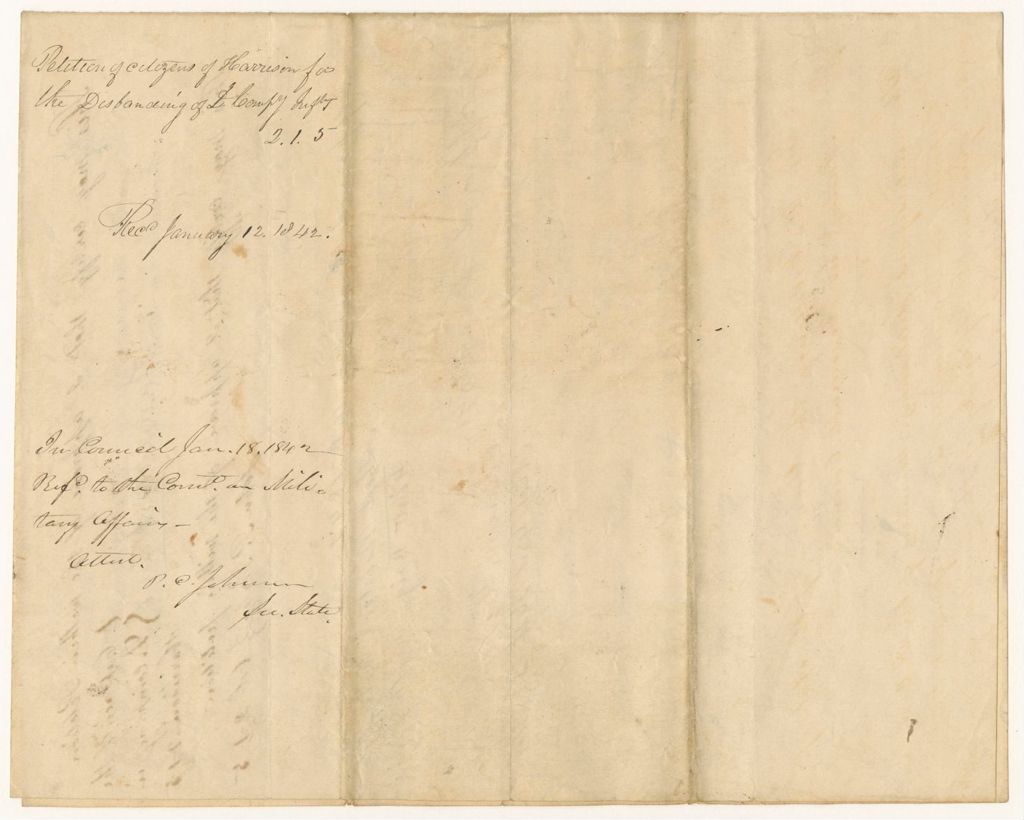 Petition of citizens of Harrison for
the Disbanding of L Compy Inft
2. 1. 5
Recd January 12. 1842.
In Council Jan. 18. 1842
Refd. to the Comt. on Mili-
tary Affairs—
Attest.
P. C. Johnson
Sec. State.